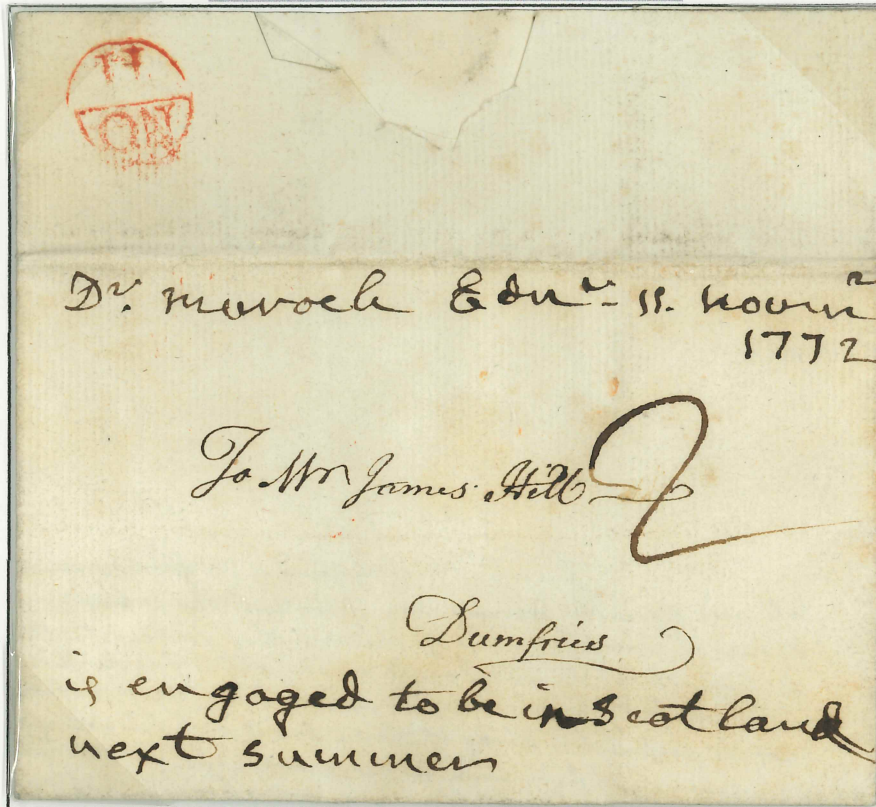 11
NO
Dr. Ednr. 11. Novmr
1772
To Mr James Hill
2
Dumfries
is engaged to be in Scotland
next summer